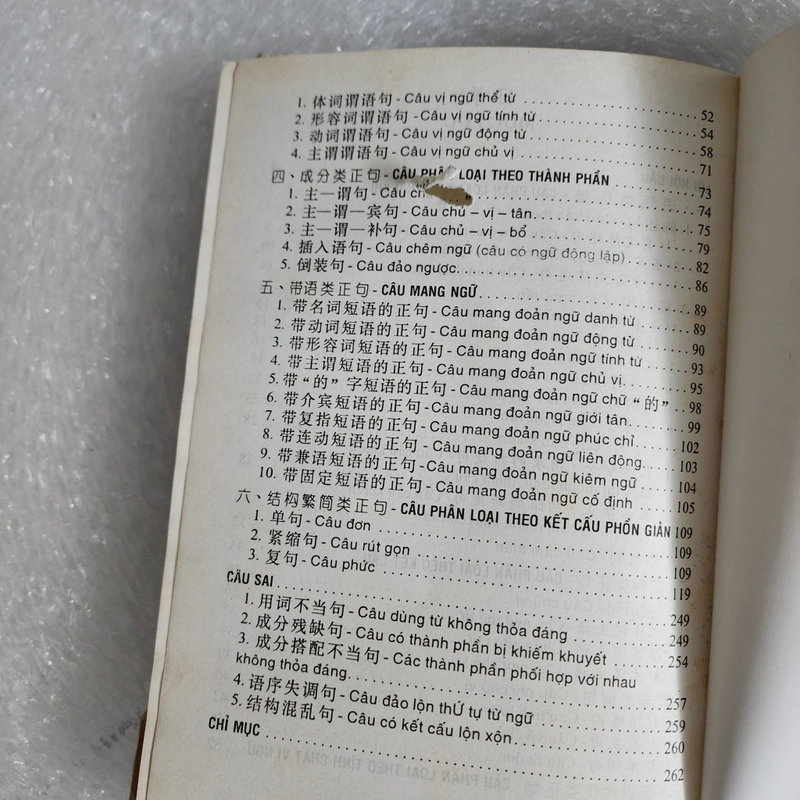 1. 体词谓语句 - Câu vị ngữ thể từ 52
2. 形容词谓语句 - Câu vị ngữ tính từ 54
3. 动词谓语句 - Câu vị ngữ động từ 58
4. 主谓谓语句 - Câu vị ngữ chủ vị 71
四、成分类正句 - CÂU PHÂN LOẠI THEO THÀNH PHẦN 73
1. 主—谓句 - Câu 74
2. 主—谓—宾句 - Câu chủ – vị – tân 75
3. 主—谓—补句 - Câu chủ – vị – bổ 79
4. 插入语句 - Câu chêm ngữ (câu có ngữ động lập) 82
5. 倒装句 - Câu đảo ngược 86
五、带语类正句 - CÂU MANG NGỮ 89
1. 带名词短语的正句 - Câu mang đoản ngữ danh từ 89
2. 带动词短语的正句 - Câu mang đoản ngữ động từ 90
3. 带形容词短语的正句 - Câu mang đoản ngữ tính từ 93
4. 带主谓短语的正句 - Câu mang đoản ngữ chủ vị 95
5. 带“的”字短语的正句 - Câu mang đoản ngữ chữ “的” 98
6. 带介宾短语的正句 - Câu mang đoản ngữ giới tân 99
7. 带复指短语的正句 - Câu mang đoản ngữ phúc chỉ 102
8. 带连动短语的正句 - Câu mang đoản ngữ liên động 103
9. 带兼语短语的正句 - Câu mang đoản ngữ kiêm ngữ 104
10. 带固定短语的正句 - Câu mang đoản ngữ cố định 105
六、结构繁简类正句 - CÂU PHÂN LOẠI THEO KẾT CẤU PHỒN GIẢN 109
1. 单句 - Câu đơn 109
2. 紧缩句 - Câu rút gọn 109
3. 复句 - Câu phức 119
CÂU SAI 249
1. 用词不当句 - Câu dùng từ không thỏa đáng 249
2. 成分残缺句 - Câu có thành phần bị khiếm khuyết 254
3. 成分搭配不当句 - Các thành phần phối hợp với nhau
không thỏa đáng 257
4. 语序失调句 - Câu đảo lộn thứ tự từ ngữ 259
5. 结构混乱句 - Câu có kết cấu lộn xộn 260
CHỈ MỤC 262